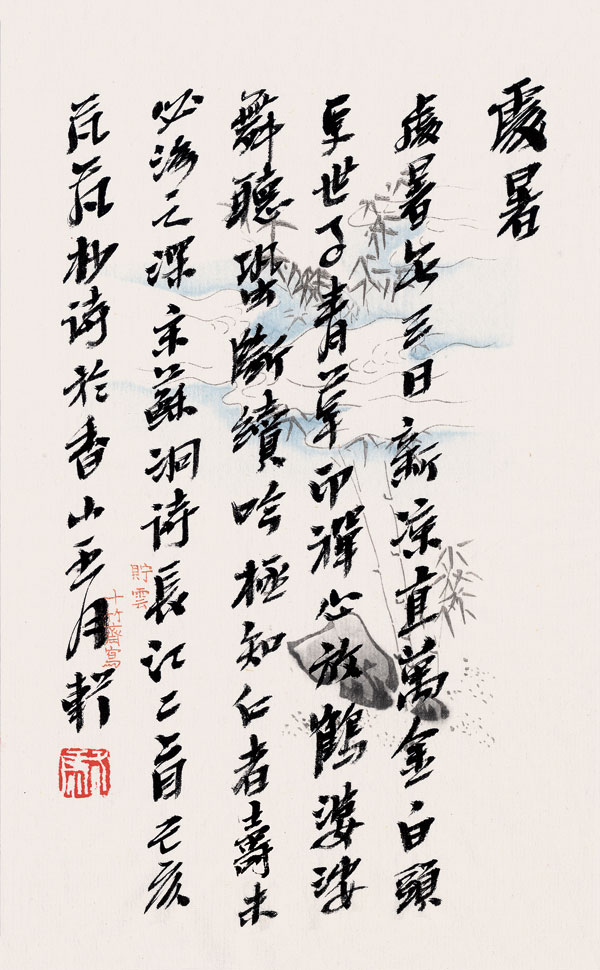 處暑
處暑無三日新凉直萬金白頭
更世事青草印禪心放鶴婆娑
舞聽蛩斷續吟極知仁者壽未
必海之深宋蘇泂詩長江二首己亥
抄詩於香山月軒
貯雲
十竹齋寫